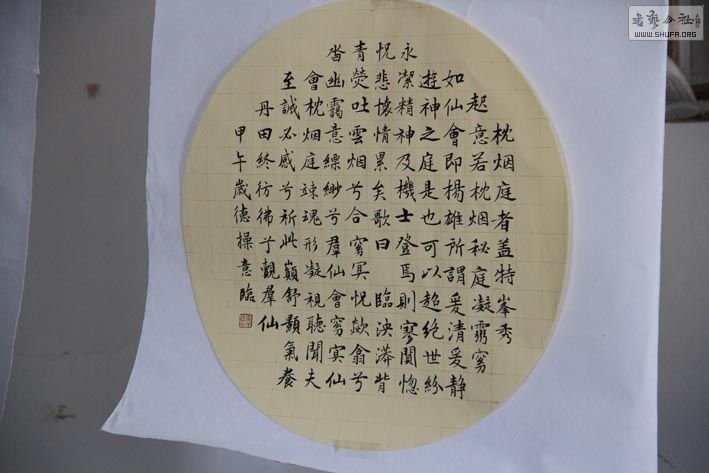 枕烟庭者盖特峯秀
起意若枕烟秘庭凝霛窅
如仙會即楊雄所謂爰清爰静
遊神之庭是也可以超绝世紛
永潔精神及機士登焉則寥闃惚
怳悲懷情累矣歌曰 臨泱漭背
青熒吐雲烟兮合窅冥怳欻翕兮
沓幽靄意縹緲兮羣仙會窅冥仙
會枕烟庭竦魂形凝視聽聞夫
至誠必感兮祈此巔舒顥氣養
丹田終彷彿兮觀羣仙
甲午歲德操意臨
WWW.SHUFA.ORG